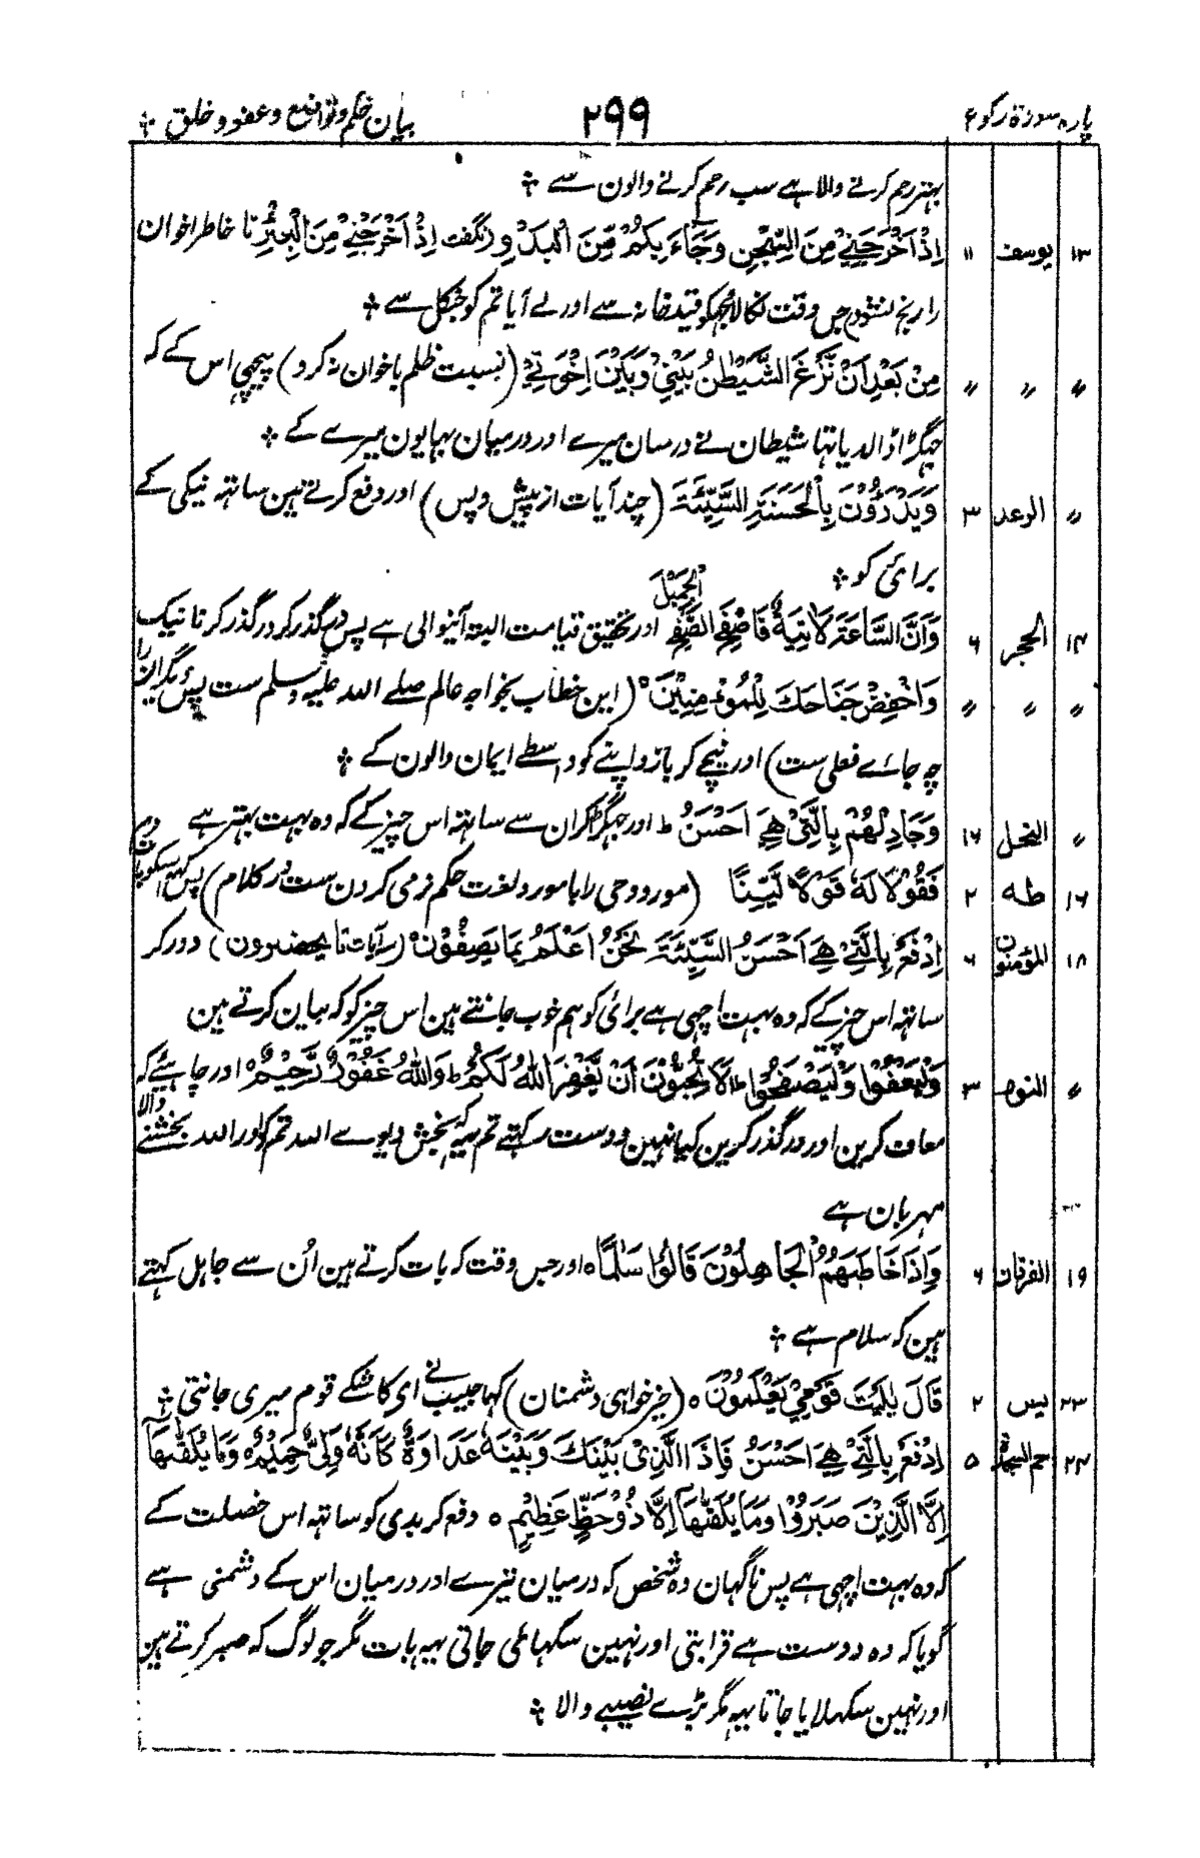 پارہ سورۃ رکوع ۲۹۹ بیان حکم و تواضع و عفو و خلق
بہتر رحم کرنے والا ہے سب رحم کرنے والون سے
۱۳ یوسف ۱۱ اِذْ اَخْرَجَنِیْ مِنَ السِّجْنِ وَجَآءَ بِکُمْ مِّنَ الْبَدْوِ ونگفت اِذْ اَخْرَجَنِیْ مِنَ الْبِئْرِ تا خاطر اخوان
را رنج نشود جس وقت نکالا مجہکو قیدخانہ سے اور لے آیا تم کو جنگل سے
〃 〃 〃 مِنْ بَعْدِ اَنْ نَّزَغَ الشَّیْطٰنُ بَیْنِیْ وَبَیْنَ اِخْوَتِیْ (نسبت ظلم باخوان نہ کرد) پیچہی اس کے کہ
جہگڑا ڈالدیا تہا شیطان نے درمیان میرے اور درمیان بہایون میرے کے
〃 الرعد ۳ وَیَدْرَؤُنَ بِالْحَسَنَۃِ السَّیِّئَۃَ (چند آیات از پیش و پس) اور دفع کرتے ہین ساتہہ نیکی کے
برائی کو
۱۴ الحجر ۶ وَاِنَّ السَّاعَۃَ لَاٰتِیَۃٌ فَاصْفَحِ الصَّفْحَ الْجَمِیْلَ اور تحقیق قیامت البتہ آنیوالی ہے پس درگذر کر درگذر کرنا نیک
〃 〃 〃 وَاخْفِضْ جَنَاحَكَ لِلْمُؤْمِنِیْنَ (این خطاب بخواجہ عالم صلے اللہ علیہ وسلم ست پس دیگران را
چہ جائے فعلی ست) اور نیچے کر بازو اپنے کو واسطے ایمان والون کے
〃 النحل ۱۶ وَجَادِلْهُمْ بِالَّتِیْ هِیَ اَحْسَنُ ط اور جہگڑا کر ان سے ساتہہ اس چیز کے کہ وہ بہت بہتر ہے
۱۶ طہ ۲ فَقُوْلَا لَهٗ قَوْلًا لَّیِّنًا (مورد وحی را با مورد لعنت حکم نرمی کردن ست در کلام) پس کہو اسکو بات نرم
۱۸ المؤمنون ۶ اِدْفَعْ بِالَّتِیْ هِیَ اَحْسَنُ السَّیِّئَۃَ نَحْنُ اَعْلَمُ بِمَا یَصِفُوْنَ (آیات تا یحضرون) دور کر
ساتہہ اس چیز کے کہ وہ بہت اچہی ہے برائی کو ہم خوب جانتے ہین اس چیز کو کہ بیان کرتے ہین
〃 النور ۳ وَلْیَعْفُوْا وَلْیَصْفَحُوْا ط اَلَا تُحِبُّوْنَ اَنْ یَّغْفِرَ اللّٰهُ لَکُمْ ط وَاللّٰهُ غَفُوْرٌ رَّحِیْمٌ ہ اور چاہئے کہ
معاف کرین اور درگذر کرین کیا نہین دوست رکہتے تم یہہ کہ بخش دیوے اللہ تم کو اور اللہ بخشنے والا
مہربان ہے
۱۹ الفرقان ۶ وَاِذَا خَاطَبَهُمُ الْجَاهِلُوْنَ قَالُوْا سَلٰمًا ہ اور جس وقت کہ بات کرتے ہین اُن سے جاہل کہتے
ہین کہ سلام ہے
۲۳ یس ۲ قَالَ یٰلَیْتَ قَوْمِیْ یَعْلَمُوْنَ ہ (خیر خواہی دشمنان) کہا حبیب نے ای کاشکے قوم میری جانتی
۲۴ حم السجدۃ ۵ اِدْفَعْ بِالَّتِیْ هِیَ اَحْسَنُ فَاِذَا الَّذِیْ بَیْنَكَ وَبَیْنَهٗ عَدَاوَۃٌ کَاَنَّهٗ وَلِیٌّ حَمِیْمٌ ہ وَمَا یُلَقّٰهَآ
اِلَّا الَّذِیْنَ صَبَرُوْا وَمَا یُلَقّٰهَآ اِلَّا ذُوْ حَظٍّ عَظِیْمٍ ہ دفع کر بدی کو ساتہہ اس خصلت کے
کہ وہ بہت اچہی ہے پس ناگہان وہ شخص کہ درمیان تیرے اور درمیان اس کے دشمنی ہے
گویا کہ وہ دوست ہے قرابتی اور نہین سکہائی جاتی یہہ بات مگر جو لوگ کہ صبر کرتے ہین
اور نہین سکہلایا جاتا یہہ مگر بڑے نصیبے والا